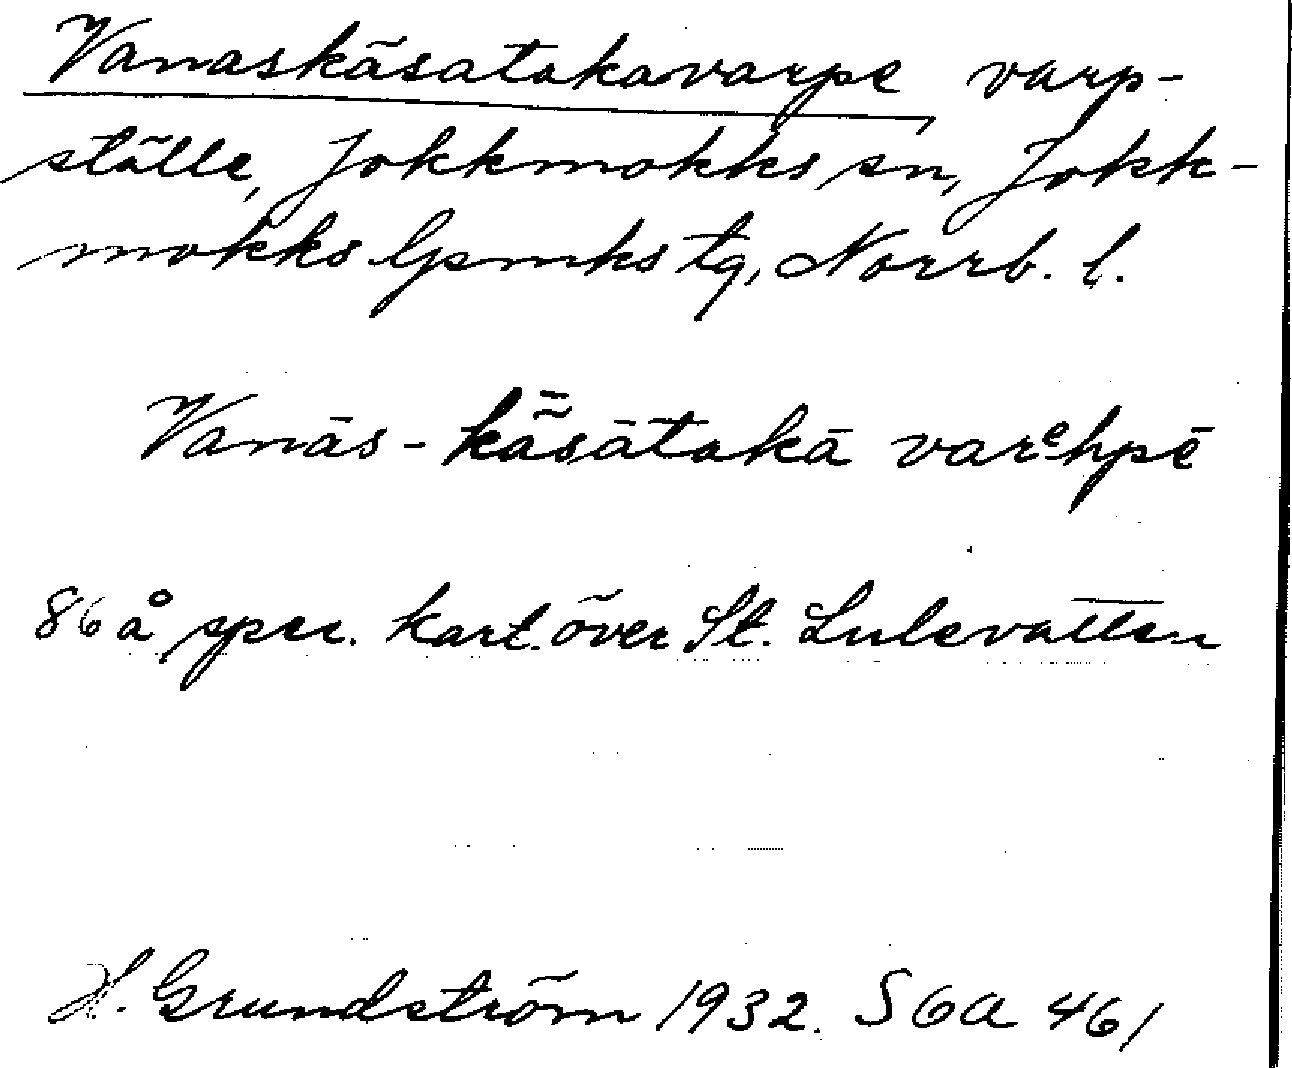 Vanaskäsatakavarpe varp-
ställe, Jokkmokks sn, Jokk-
mokks lpmks tg, Norrb. l.
Vanās-kǟsātakā varᵉhpē
86 å spec. kart. över St. Lulevatten
H. Grundström 1932. SGA 461